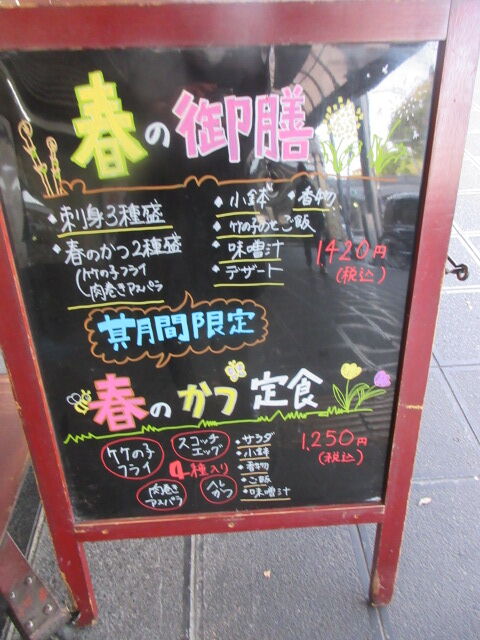 春の御膳
・刺身3種盛
・春のかつ2種盛
(竹の子フライ
肉巻きアスパラ
・小鉢 ・香物
・竹の子のたきご飯
・味噌汁
・デザート
1420円
(税込)
期間限定
春のかつ定食
竹の子
フライ
スコッチ
エッグ
4種入り
肉巻き
アスパラ
ヘレ
かつ
・サラダ
・小鉢
・香物
・ご飯
・味噌汁
1,250円
(税込)